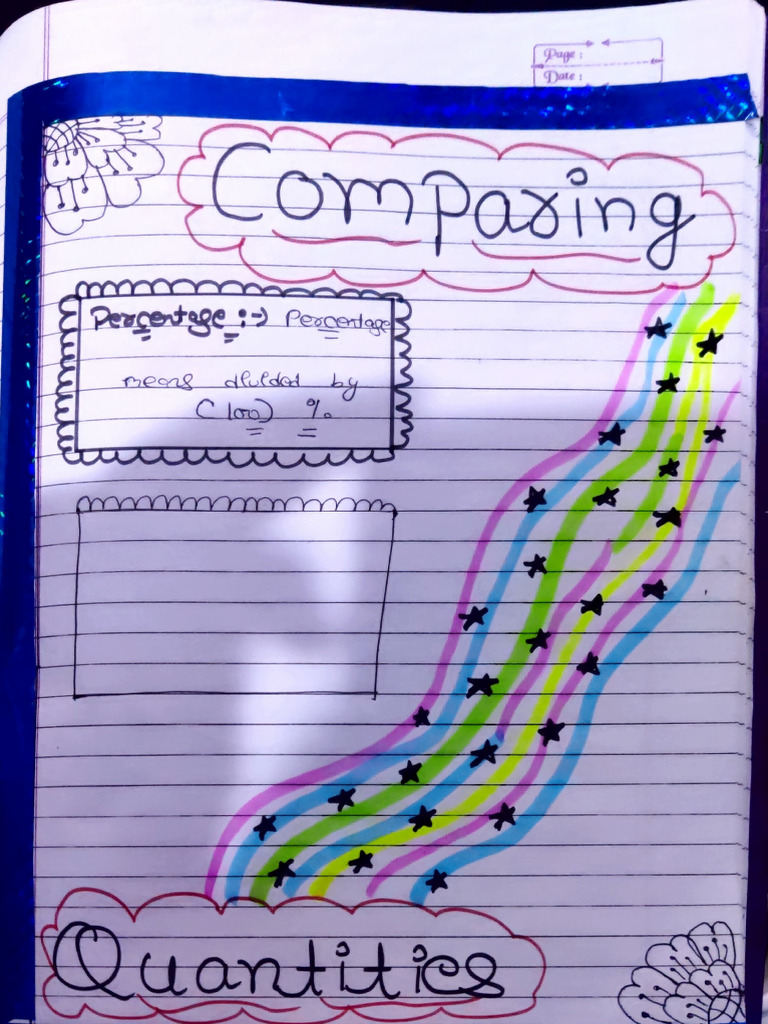 Page :
Date :
Comparing
Percentage :-> Percentage
means divided by
(100) %.
Quantities